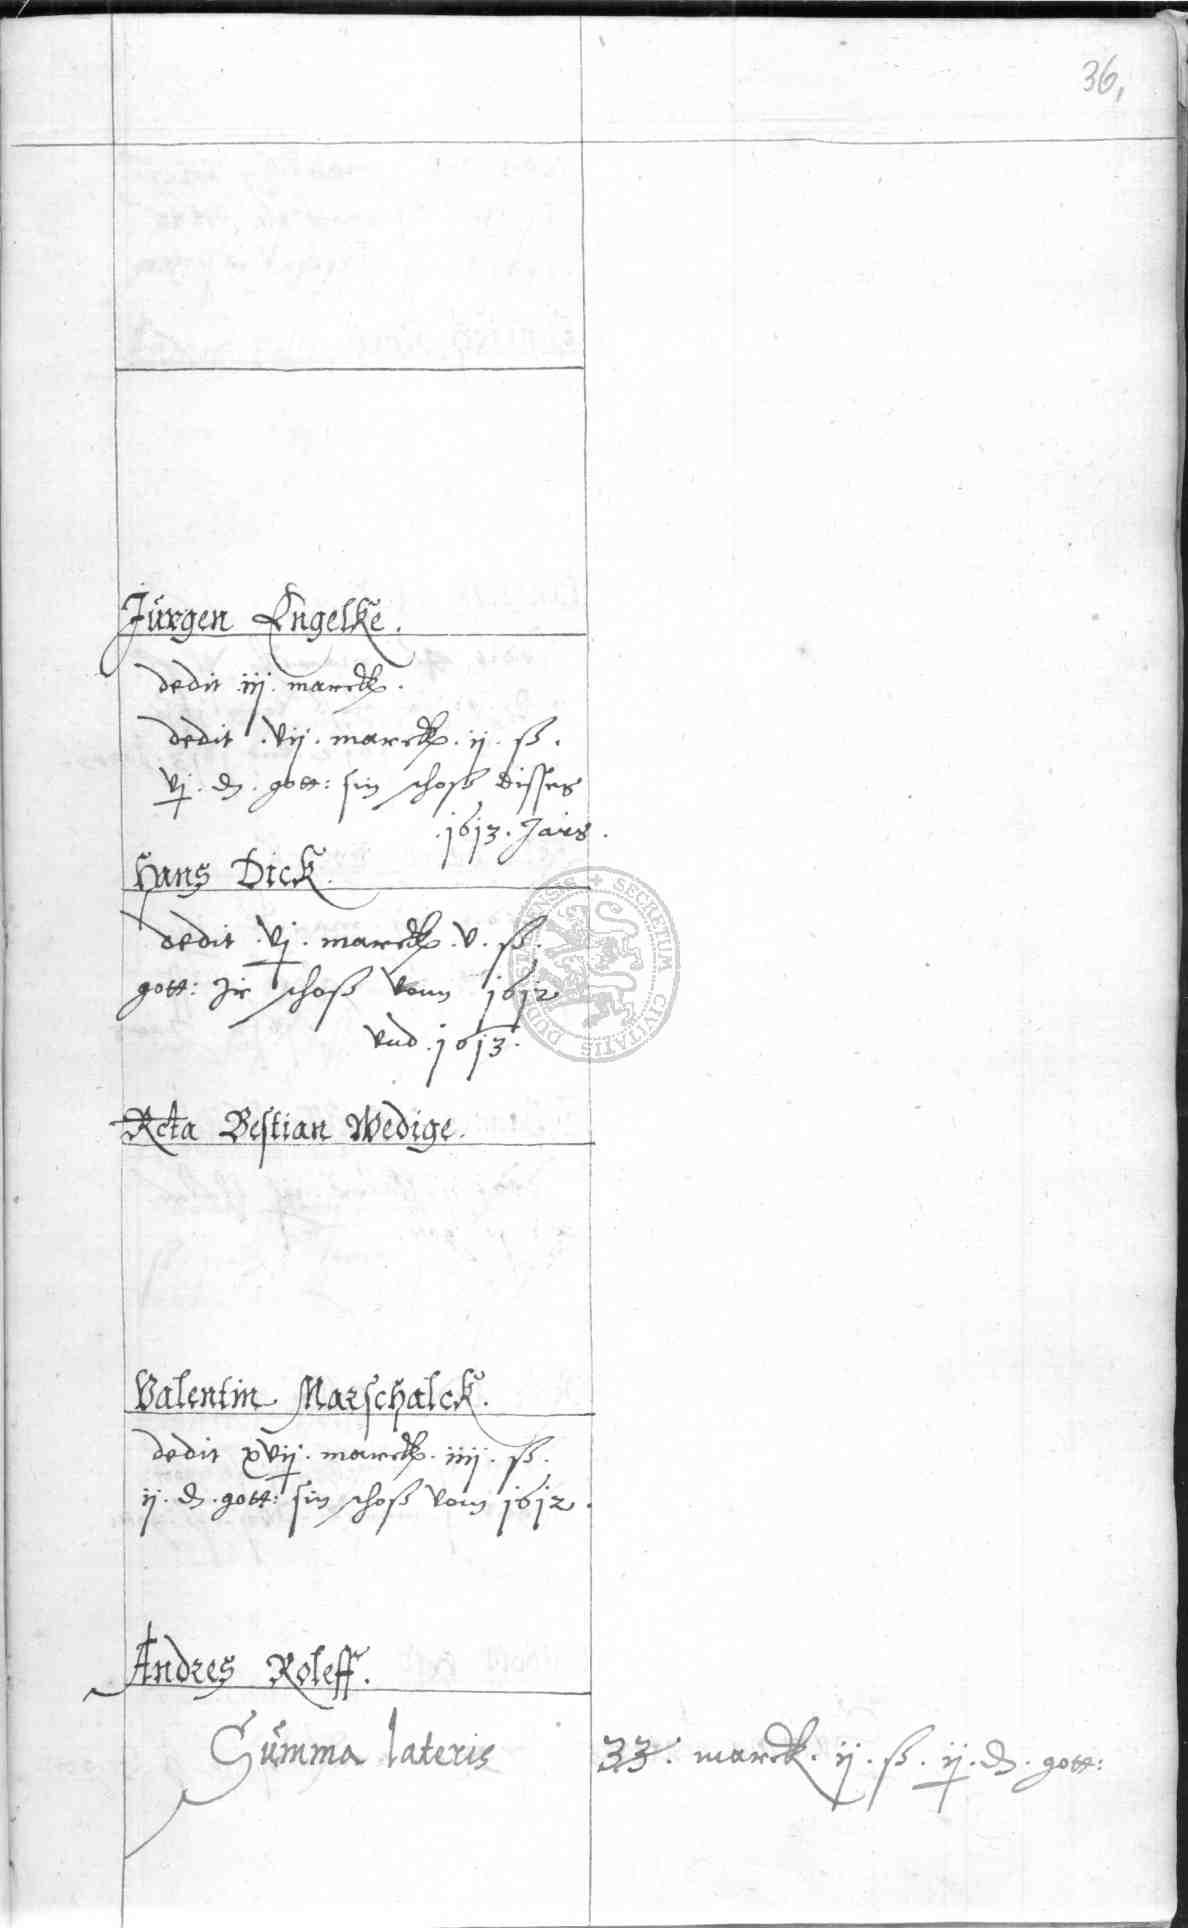 36,
Jürgen Engelke.
dedit iij. marck.
dedit .vij. marck. ij. ß.
vj. ₰. gott: sin schoß disses
.1613. Jars.
Hans Dick.
dedit .vj. marck. v. ß.
gott: Jr schoß vom 1612
vnd .1613.
Reta Bestian Wedige.
Valentin Marschalck.
dedit xvij. marck. iiij. ß.
ij. ₰. gott: sin schoß vom 1612.
Andres Roleff.
Summa lateris 33. marck. ij. ß. ij. ₰. gott:
SECRETUM CIVITATIS DUDERSTATENSIS